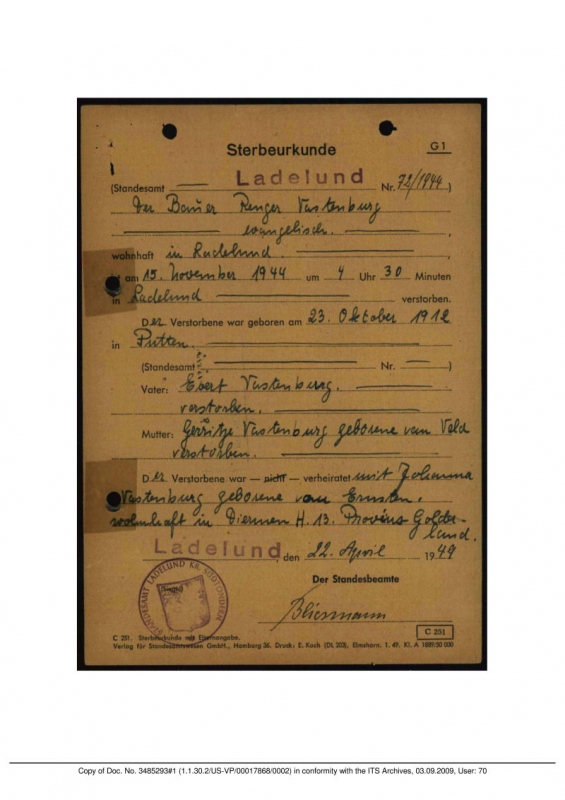 Sterbeurkunde
G 1
(Standesamt — Ladelund Nr. 72/1944)
Der Bauer Renger Vastenburg
evangelisch.
wohnhaft in Ladelund.
ist am 15. November 1944 um 4 Uhr 30 Minuten
in Ladelund verstorben.
Der Verstorbene war geboren am 23. Oktober 1912
in Putten.
(Standesamt — Nr. —)
Vater: Evert Vastenburg.
verstorben.
Mutter: Gerritje Vastenburg geborene van Veld
verstorben.
Der Verstorbene war — nicht — verheiratet mit Johanna
Vastenburg geborene van Ernsten,
wohnhaft in Diermen H. 13. Provinz Golder-
land.
Ladelund, den 22. April 1949
Der Standesbeamte
STANDESAMT LADELUND KR. SÜDTONDERN
C 251
C 251. Sterbeurkunde mit Elternangabe.
Verlag für Standesamtswesen GmbH., Hamburg 36. Druck: E. Koch (DL 203), Elmshorn. 1. 49. Kl. A
Copy of Doc. No. 3485293#1 (1.1.30.2/US-VP/00017868/0002) in conformity with the ITS Archives, 03.09.2009, User: 70